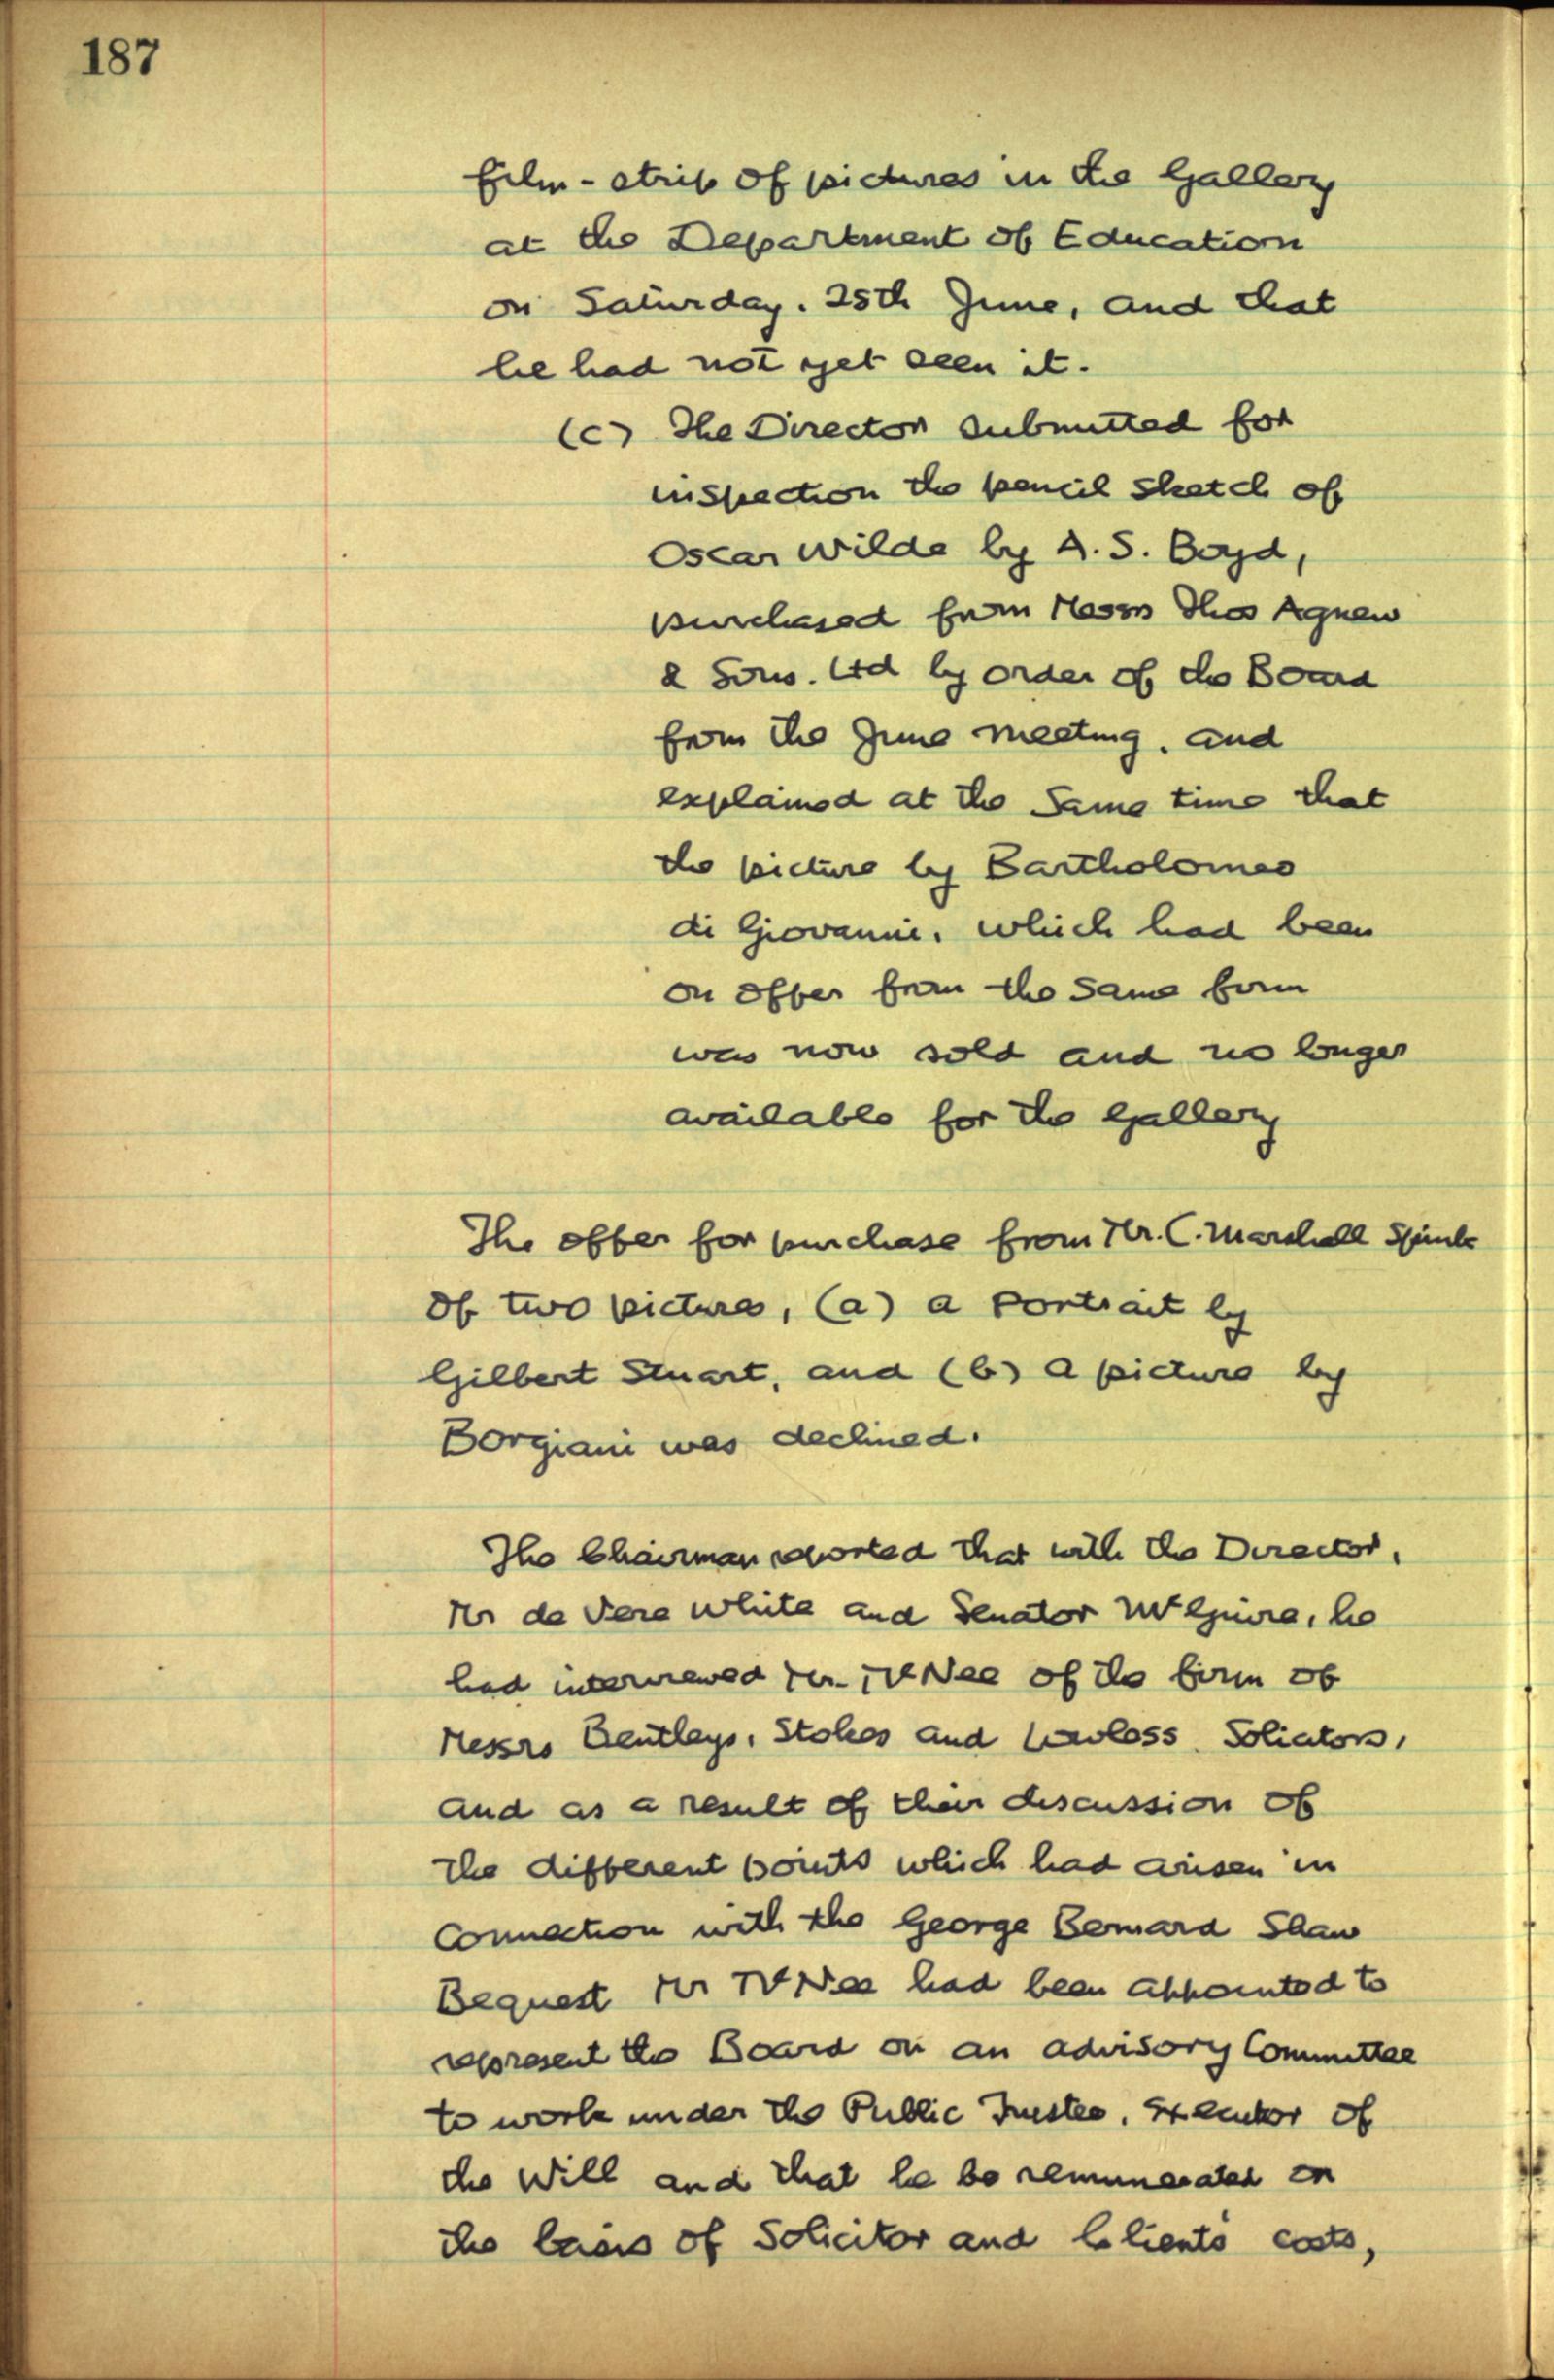 187
film-strip of pictures in the Gallery
at the Department of Education
on Saturday. 25th June, and that
he had not yet seen it.
(c) The Director submitted for
inspection the pencil sketch of
Oscar Wilde by A. S. Boyd,
purchased from Messrs Thos Agnew
& Sons. Ltd by order of the Board
from the June meeting. and
explained at the same time that
the picture by Bartholomeo
di Giovanni. which had been
on offer from the same firm
was now sold and no longer
available for the Gallery
The offer for purchase from Mr. C. Marshall Spink
of two pictures, (a) a Portrait by
Gilbert Stuart, and (b) a picture by
Borgiani was declined.
The Chairman reported that with the Director,
Mr de Vere White and Senator McGuire, he
had interviewed Mr. McNee of the firm of
Messrs Bentleys, Stokes and Lawless. Soliators,
and as a result of their discussion of
the different points which had arisen in
connection with the George Bernard Shaw
Bequest Mr McNee had been appointed to
represent the Board on an advisory Committee
to work under the Public Trustee. Executor of
the Will and that he be remunerated on
the basis of Solicitor and Client's costs,